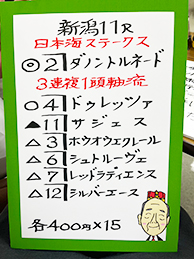 新潟11R
日本海ステークス
◎2 ダノントルネード
3連複1頭軸流
○4 ドゥレッツァ
▲11 サジェス
△3 ホウオウエクレール
△6 シュトルーヴェ
△7 レッドラディエンス
△12 シルバーエース
各400円×15